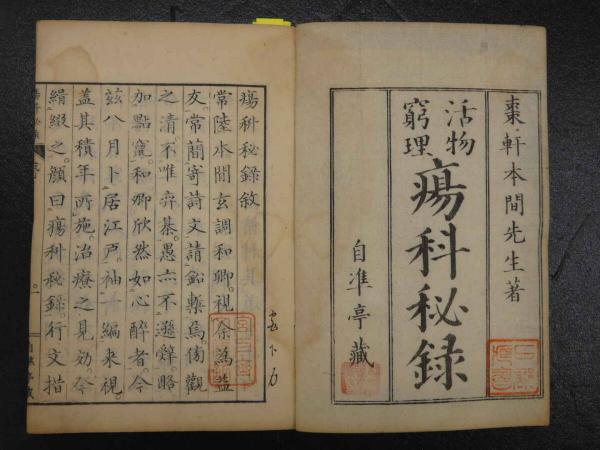 棗軒本間先生著
活物
窮理
瘍科秘録
自準亭藏
瘍科秘録敘
常陸本間玄調和卿視余為益
友常簡寄詩文請鉛槧焉傍觀
之清不唯弈棊愚亦不遜辤略
加點竄和卿欣然如心醉者今
茲八月卜居江戸袖一編来視
蓋其積年所施治療之見効今
緝綴之顔曰瘍科秘録行文措